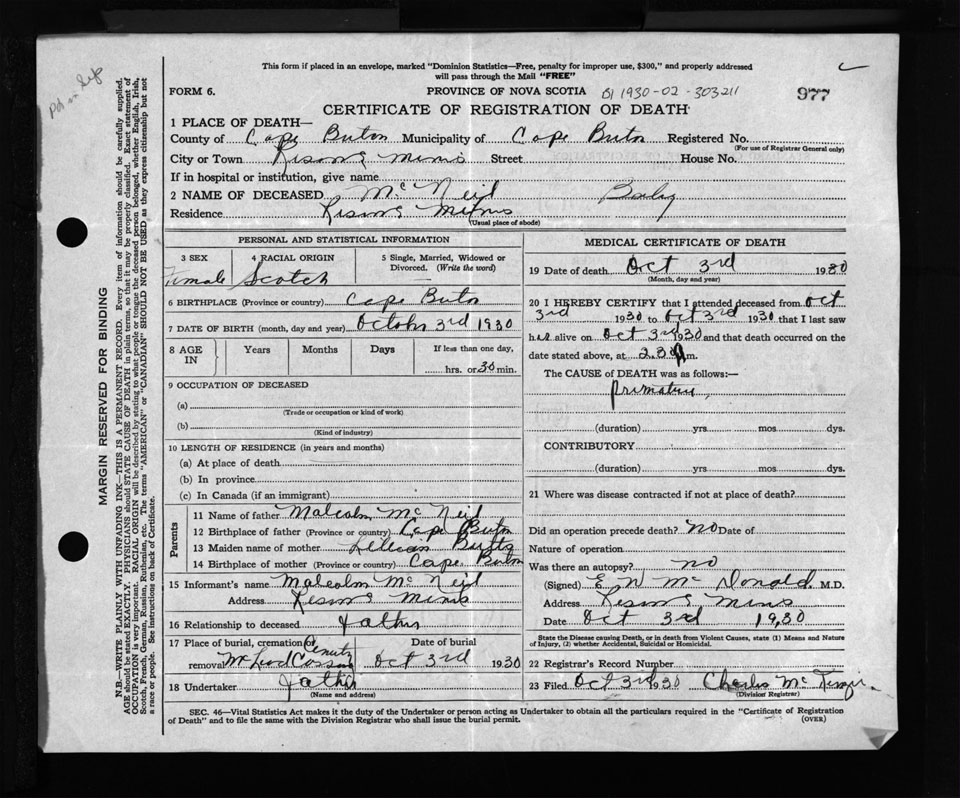 This form if placed in an envelope, marked "Dominion Statistics—Free, penalty for improper use, $300," and properly addressed
will pass through the Mail "FREE"
FORM 6.
PROVINCE OF NOVA SCOTIA
1930-02-303211
977
CERTIFICATE OF REGISTRATION OF DEATH
1 PLACE OF DEATH—
County of Cape Breton Municipality of Cape Breton Registered No.
(For use of Registrar General only)
City or Town Reserve Mines Street House No.
If in hospital or institution, give name
2 NAME OF DECEASED McNeil Baby
Residence Reserve Mines
(Usual place of abode)
PERSONAL AND STATISTICAL INFORMATION
3 SEX 4 RACIAL ORIGIN 5 Single, Married, Widowed or Divorced. (Write the word)
Female Scotch
6 BIRTHPLACE (Province or country) Cape Breton
7 DATE OF BIRTH (month, day and year) October 3rd 1930
8 AGE IN Years Months Days If less than one day,
hrs. or 30 min.
9 OCCUPATION OF DECEASED
(a)
(Trade or occupation or kind of work)
(b)
(Kind of industry)
10 LENGTH OF RESIDENCE (in years and months)
(a) At place of death
(b) In province
(c) In Canada (if an immigrant)
Parents
11 Name of father Malcolm McNeil
12 Birthplace of father (Province or country) Cape Breton
13 Maiden name of mother Lillian
14 Birthplace of mother (Province or country) Cape Breton
15 Informant's name Malcolm McNeil
Address Reserve Mines
16 Relationship to deceased father
17 Place of burial, cremation or Date of burial
removal McLeod Crossing Oct 3rd 1930
18 Undertaker father
(Name and address)
MEDICAL CERTIFICATE OF DEATH
19 Date of death Oct 3rd 1930
(Month, day and year)
20 I HEREBY CERTIFY that I attended deceased from Oct
3rd 1930 to Oct 3rd 1930 that I last saw
her alive on Oct 3rd 1930 and that death occurred on the
date stated above, at 2.30 m.
The CAUSE of DEATH was as follows:—
premature
(duration) yrs mos dys.
CONTRIBUTORY
(duration) yrs mos dys.
21 Where was disease contracted if not at place of death?
Did an operation precede death? no Date of
Nature of operation
Was there an autopsy? no
(Signed) E N McDonald M.D.
Address Reserve Mines
Date Oct 3rd 1930
State the Disease causing Death, or in death from Violent Causes, state (1) Means and Nature
of Injury, (2) whether Accidental, Suicidal or Homicidal.
22 Registrar's Record Number
23 Filed Oct 3rd 1930 Charles Mc
(Division Registrar)
SEC. 46—Vital Statistics Act makes it the duty of the Undertaker or person acting as Undertaker to obtain all the particulars required in the "Certificate of Registration
of Death" and to file the same with the Division Registrar who shall issue the burial permit. (OVER)
MARGIN RESERVED FOR BINDING
N.B.—WRITE PLAINLY WITH UNFADING INK—THIS IS A PERMANENT RECORD. Every item of information should be carefully supplied.
AGE should be stated EXACTLY. PHYSICIANS should STATE CAUSE OF DEATH in plain terms, so that it may be properly classified. Exact statement of
OCCUPATION is very important. RACIAL ORIGIN will be described by stating to what people or tongue the deceased person belonged, whether English, Irish,
Scotch, French, German, Russian, Ruthenian, etc. The terms "AMERICAN" or "CANADIAN" SHOULD NOT BE USED as they express citizenship but not
a race or people. See instructions on back of Certificate.